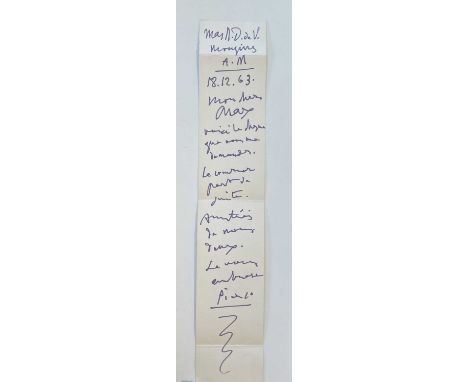 Mas N.D. de V.
Mougins
A.M
18.12.63.
Mon cher
Max
voici le chèque
que vous me
demandez.
Le courrier
part de
suite.
Amitiés
de nous
deux.
Je vous
embrasse
Picasso